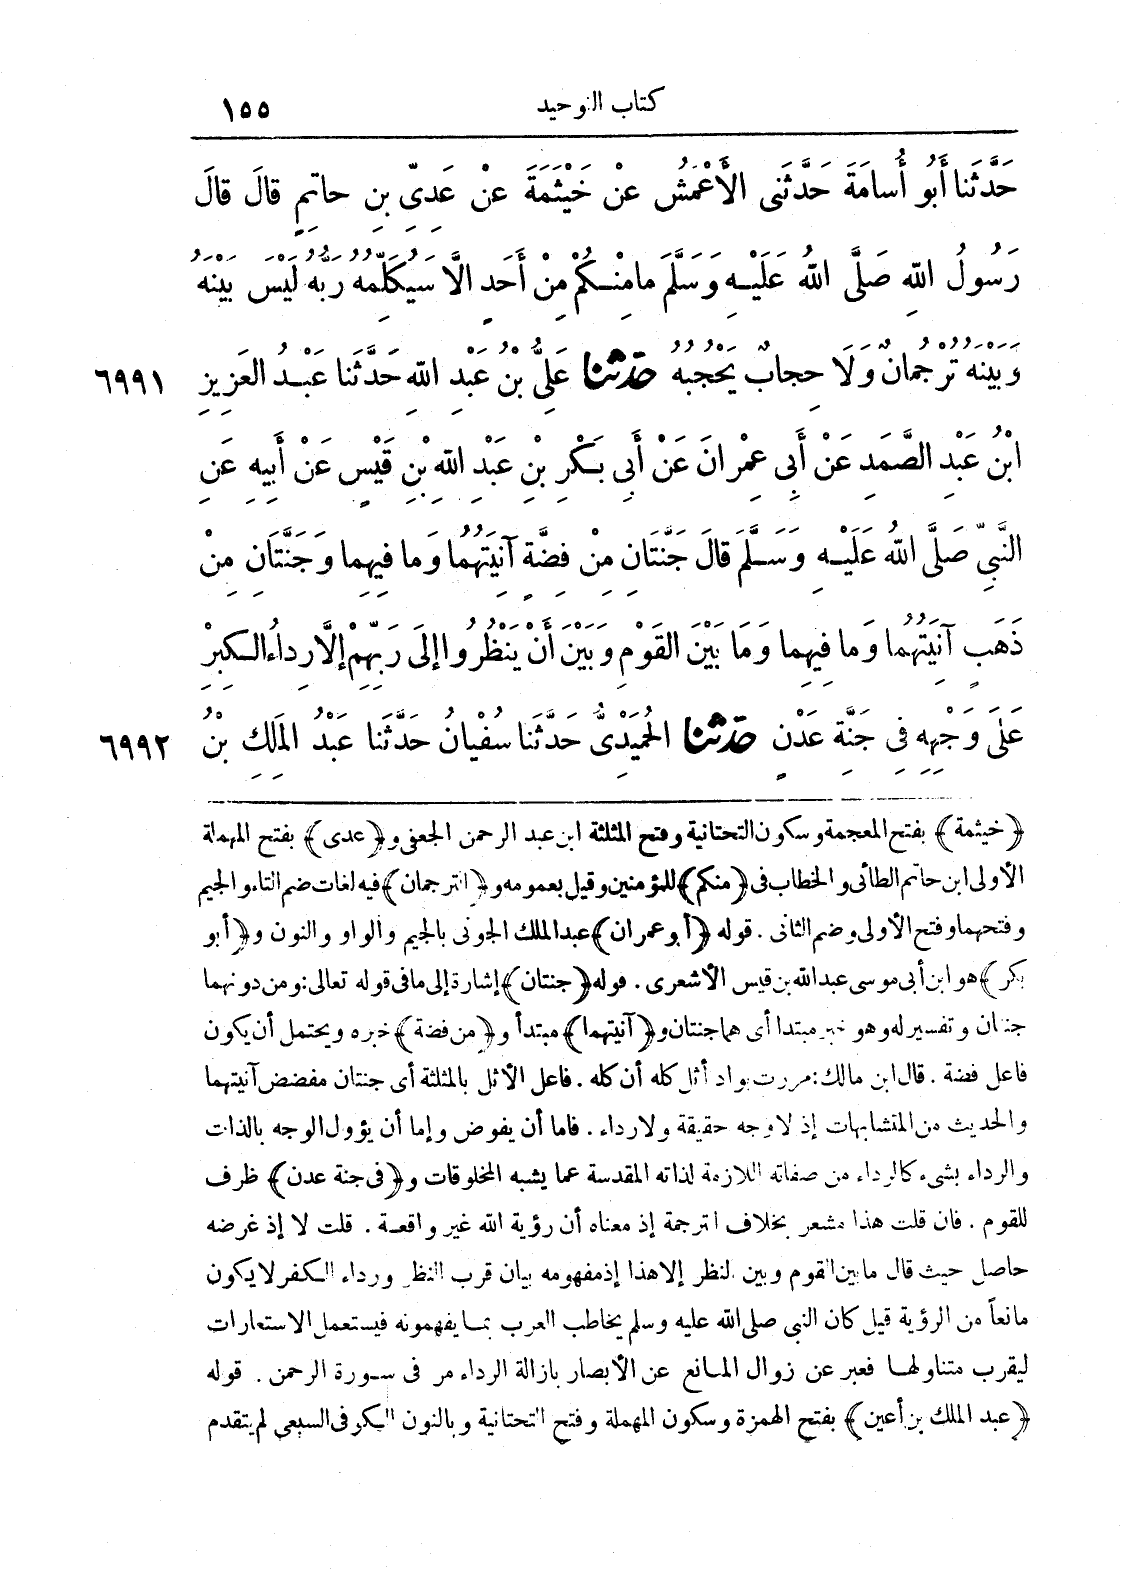 كتاب التوحيد ١٥٥
حَدَّثَنَا أَبُو أُسَامَةَ حَدَّثَنِى الْأَعْمَشُ عَنْ خَيْثَمَةَ عَنْ عَدِىِّ بنِ حاتمٍ قالَ قالَ
رَسُولُ اللهِ صَلَّى اللهُ عَلَيْهِ وَسَلَّمَ ما مِنْكُمْ مِنْ أَحَدٍ الَّا سَيُكَلِّمُهُ رَبُّهُ لَيْسَ بَيْنَهُ
وَبَيْنَهُ تُرْجُمَانٌ وَلَا حِجابٌ يَحْجُبُهُ حَدَّثَنَا عَلِىُّ بْنُ عَبْدِ اللهِ حَدَّثَنَا عَبْدُ الْعَزِيزِ ٦٩٩١
ابْنُ عَبْدِ الصَّمَدِ عَنْ أَبِى عِمْرانَ عَنْ أَبِى بَكْرِ بْنِ عَبْدِ اللهِ بْنِ قَيْسٍ عَنْ أَبِيهِ عَنِ
النَّبِىِّ صَلَّى اللهُ عَلَيْهِ وَسَلَّمَ قالَ جَنَّتَانِ مِنْ فِضَّةٍ آنِيَتُهُمَا وَما فِيهِما وَجَنَّتَانِ مِنْ
ذَهَبٍ آنِيَتُهُما وَما فِيهِما وَمَا بَيْنَ القَوْمِ وَبَيْنَ أَنْ يَنْظُرُوا إلَى رَبِّهِمْ إلَّا رِداءُ الْكِبْرِ
عَلَى وَجْهِهِ فِى جَنَّةِ عَدْنٍ حَدَّثَنَا الْحُمَيْدِىُّ حَدَّثَنَا سُفْيانُ حَدَّثَنَا عَبْدُ الْمَلِكِ بْنُ ٦٩٩٢
﴿خيثمة﴾ بفتح المعجمة وسكون التحتانية وفتح المثلثة ابن عبد الرحمن الجعفى و﴿عدى﴾ بفتح المهملة
الأولى ابن حاتم الطائى والخطاب فى ﴿منكم﴾ للمؤمنين وقيل بعمومه و﴿الترجمان﴾ فيه لغات ضم التاء والجيم
وفتحهما وفتح الأولى وضم الثانى . قوله ﴿أبو عمران﴾ عبد الملك الجونى بالجيم والواو والنون و﴿أبو
بكر﴾ هو ابن أبى موسى عبد الله بن قيس الأشعرى . قوله ﴿جنتان﴾ إشارة إلى ما فى قوله تعالى: ومن دونهما
جنتان وتفسير له وهو خبر مبتدا أى هما جنتان و﴿آنيتهما﴾ مبتدأ و﴿من فضة﴾ خبره ويحتمل أن يكون
فاعل فضة . قال ابن مالك: مررت بواد أثل كله أن كله . فاعل الأثل بالمثلثة أى جنتان مفضض آنيتهما
والحديث من المتشابهات إذ لا وجه حقيقة ولا رداء . فاما أن يفوض وإما أن يؤول الوجه بالذات
والرداء بشىء كالرداء من صفاته اللازمة لذاته المقدسة عما يشبه المخلوقات و﴿فى جنة عدن﴾ ظرف
للقوم . فان قلت هذا مشعر بخلاف الترجمة إذ معناه أن رؤية الله غير واقعة . قلت لا إذ غرضه
حاصل حيث قال ما بين القوم وبين النظر إلا هذا إذ مفهومه بيان قرب النظر ورداء الكفر لا يكون
مانعاً من الرؤية قيل كان النبى صلى الله عليه وسلم يخاطب العرب بما يفهمونه فيستعمل الاستعارات
ليقرب متناولها فعبر عن زوال المانع عن الأبصار بازالة الرداء مر فى سورة الرحمن . قوله
﴿عبد الملك بن أعين﴾ بفتح الهمزة وسكون المهملة وفتح التحتانية وبالنون الكوفى السبعى لم يتقدم